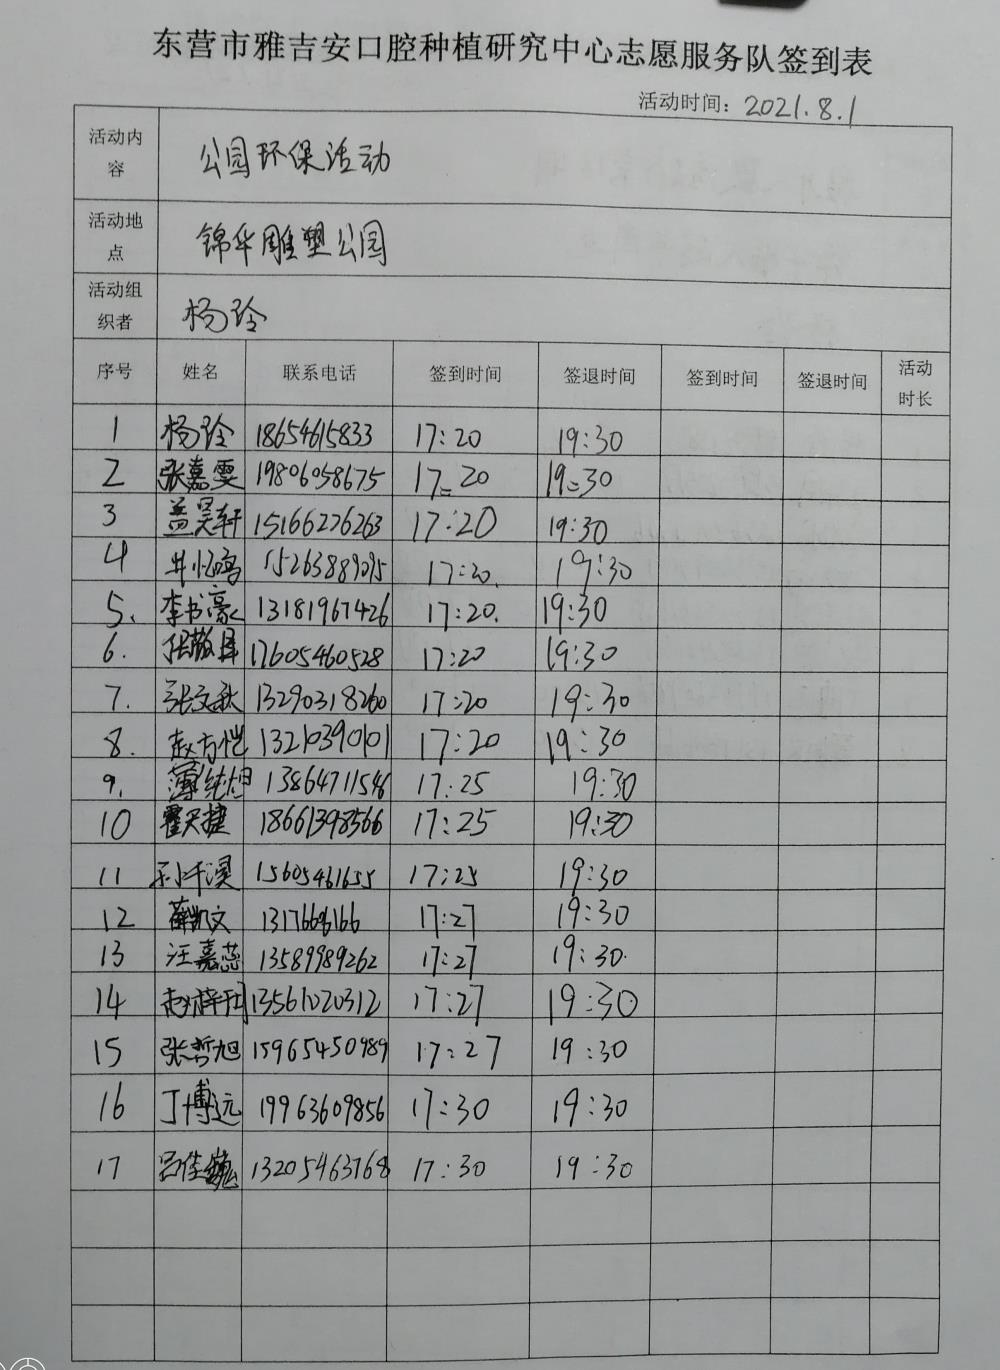 东营市雅吉安口腔种植研究中心志愿服务队签到表
活动时间：2021.8.1
活动内容 公园环保活动
活动地点 锦华雕塑公园
活动组织者 杨玲
序号 姓名 联系电话 签到时间 签退时间 签到时间 签退时间 活动时长
1 杨玲 18654615833 17:20 19:30
2 张嘉雯 19806058675 17:20 19:30
3 盖昊轩 15166276263 17:20 19:30
4 15263889095 17:20. 19:30
5. 李书豪 13181967426 17:20. 19:30
6. 17605460528 17:20 19:30
7. 张文秋 13290318260 17:20 19:30
8. 赵方恺 13210390101 17:20 19:30
9. 薄纯旭 13864711546 17:25 19:30
10 霍天捷 18661398566 17:25 19:30
11 孙千淏 15605461655 17:25 19:30
12 薛凯文 17:27 19:30
13 汪嘉蕊 13589989262 17:27 19:30.
14 13561020312 17:27 19:30
15 张哲旭 15965450989 17:27 19:30
16 丁博远 19963609856 17:30 19:30
17 吕佳巍 13205463768 17:30 19:30